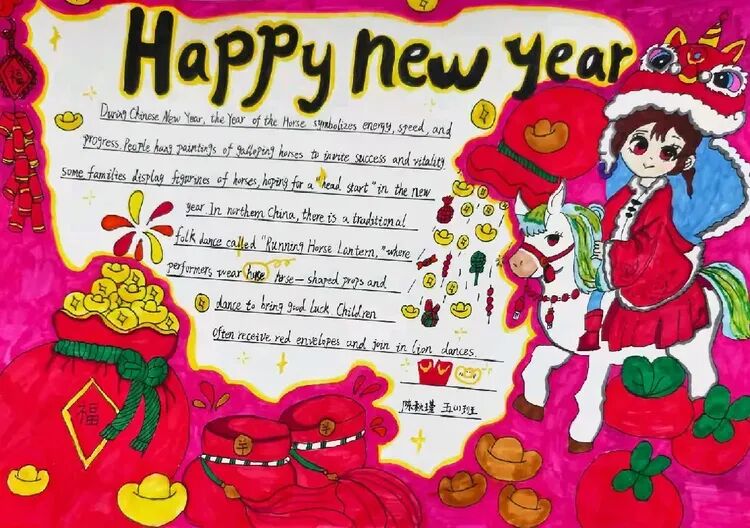 Happy new year
During Chinese New Year, the Year of the Horse symbolizes energy, speed, and
progress. People hang paintings of galloping horses to invite success and vitality.
Some families display figurines of horses, hoping for a "head start" in the new
year. In northern China, there is a traditional
folk dance called "Running Horse Lantern," where
performers wear horse-shaped props and
dance to bring good luck. Children
often receive red envelopes and join in Lion dances.
福
福
五(1)班